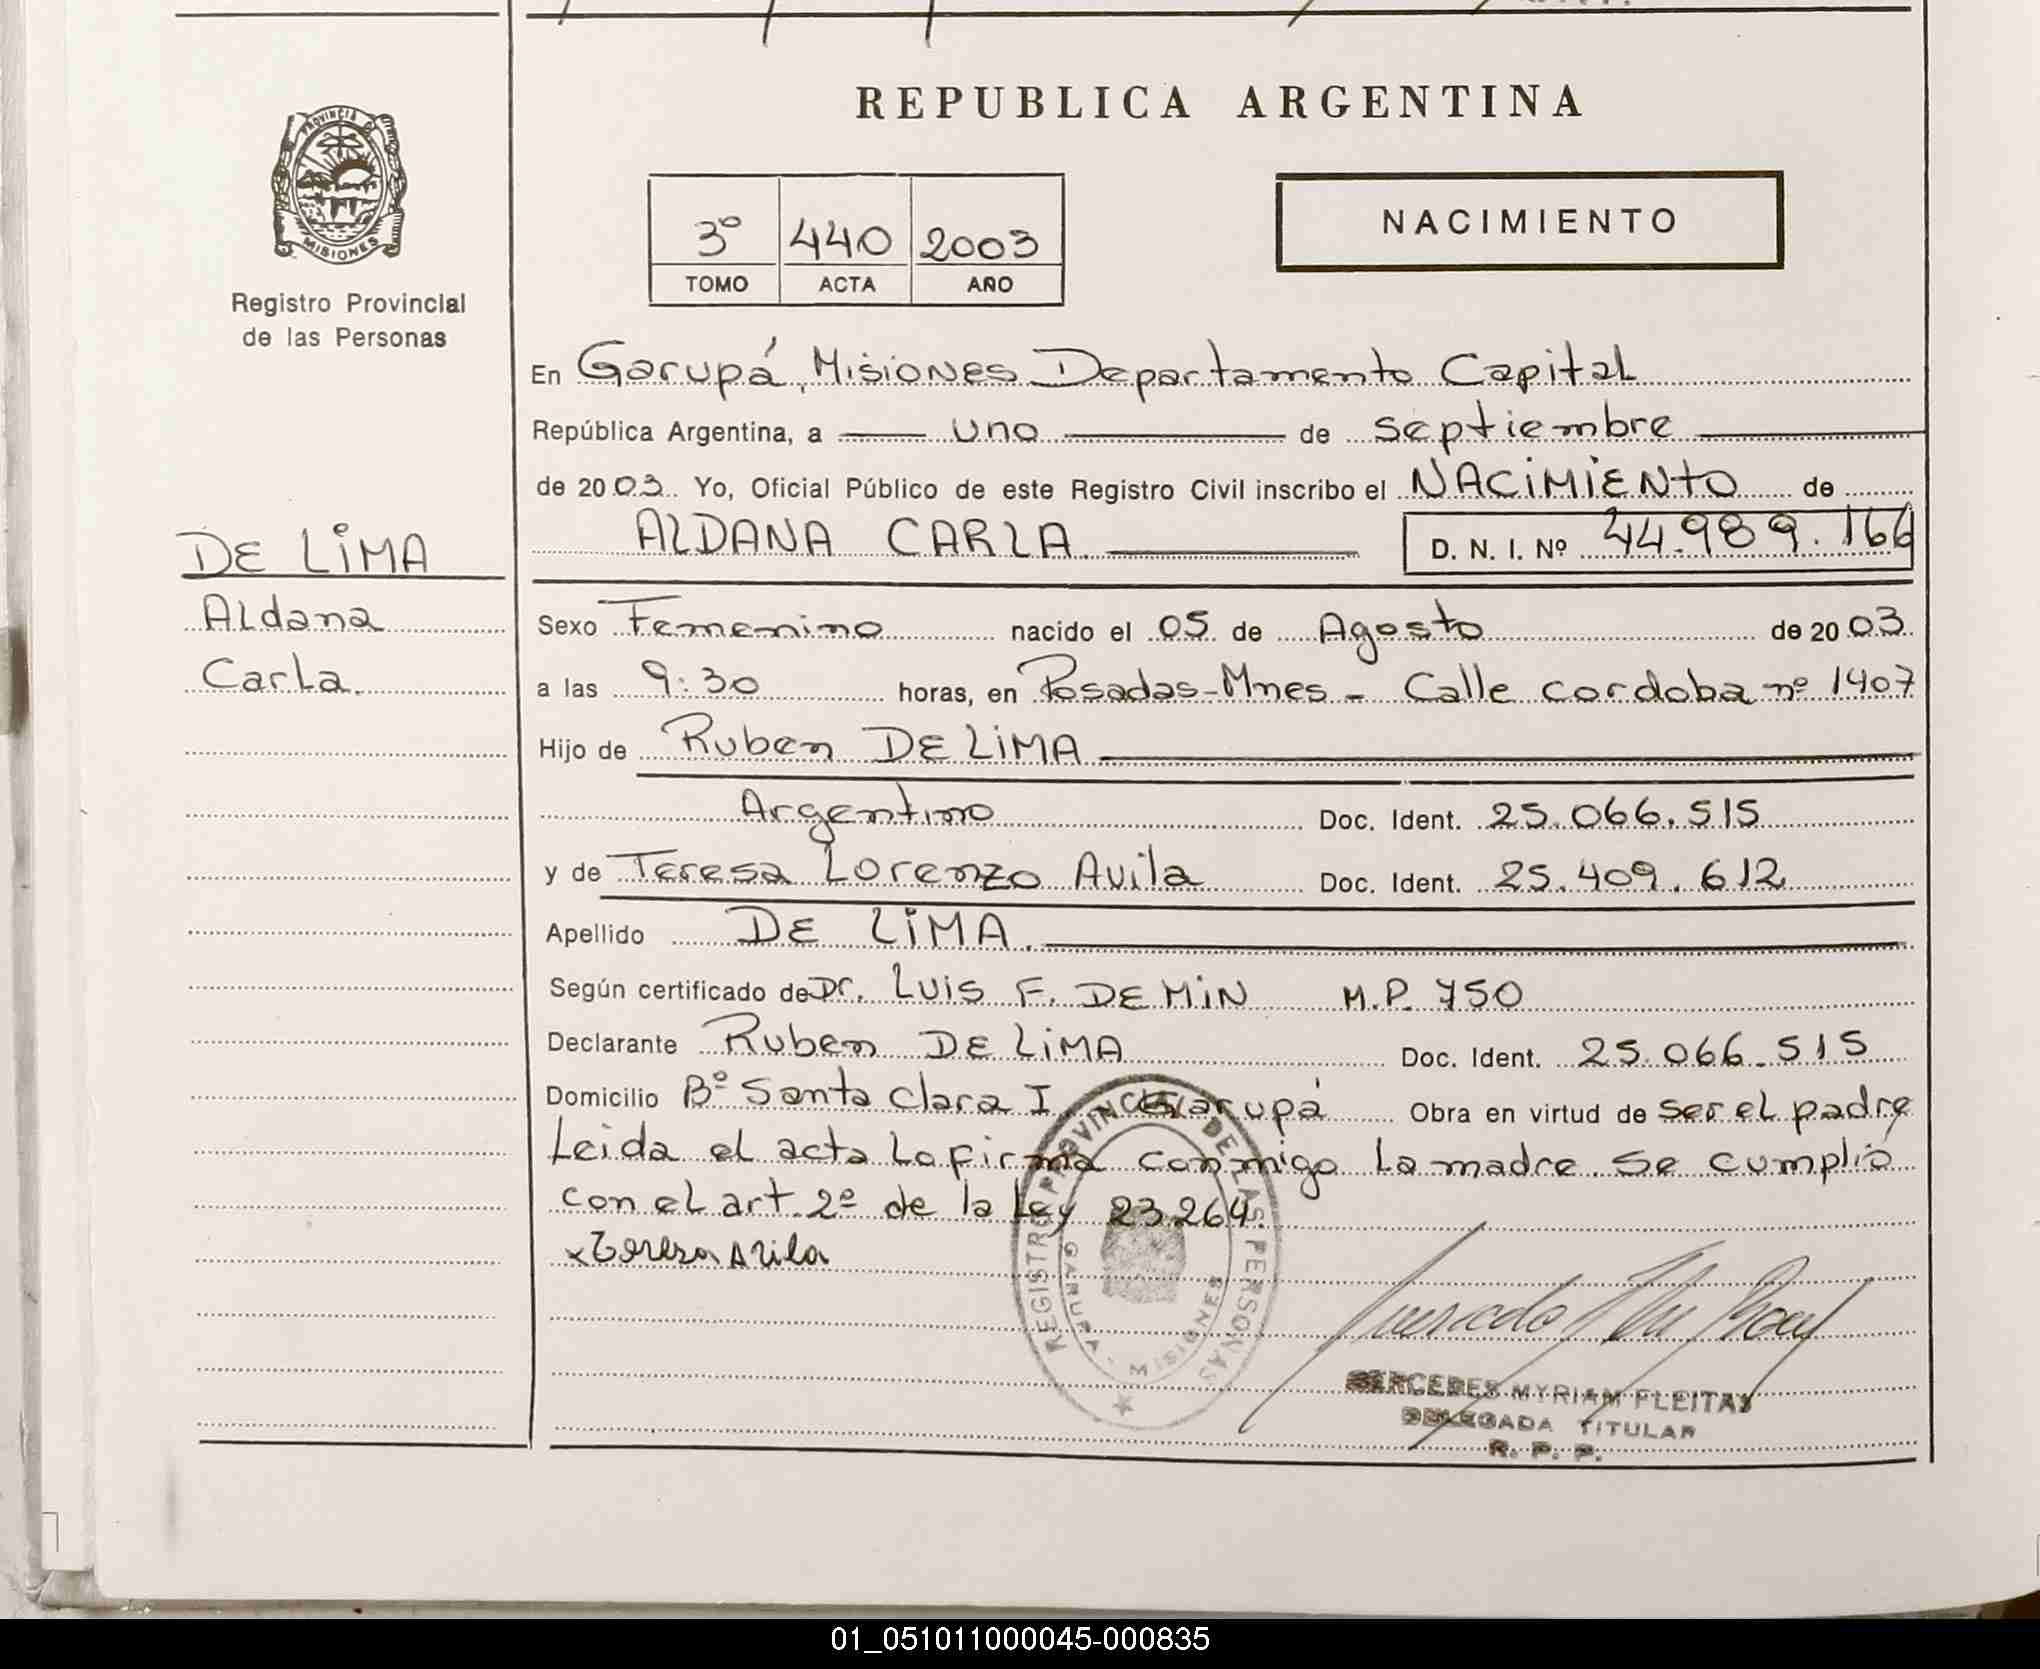 REPUBLICA ARGENTINA
PROVINCIA D
MISIONES
Registro Provincial
de las Personas
3º 440 2003
TOMO ACTA AÑO
NACIMIENTO
En Garupá, Misiones Departamento Capital
República Argentina, a uno de septiembre
de 2003. Yo, Oficial Público de este Registro Civil inscribo el NACIMIENTO de
ALDANA CARLA D. N. I. Nº 44.989.166
DE LIMA
Aldana
Carla.
Sexo Femenino nacido el 05 de Agosto de 2003.
a las 9:30 horas, en Posadas-Mnes - Calle cordoba nº 1407
Hijo de Ruben DE LIMA
Argentino Doc. Ident. 25.066.515
y de Teresa Lorenzo Avila Doc. Ident. 25.409.612
Apellido DE LIMA.
Según certificado de Dr. Luis F. DEMIN M.P. 750
Declarante Ruben DE LIMA Doc. Ident. 25.066.515
Domicilio Bº Santa Clara I Garupá Obra en virtud de ser el padre
Leida el acta La firma conmigo La madre. Se cumplió
con el art. 2º de la Ley 23.264.
x Teresa Avila
REGISTRO PROVINCIAL DE LAS PERSONAS
GARUPA - MISIONES
MERCEDES MYRIAM FLEITAS
DELEGADA TITULAR
R. P. P.
01_051011000045-000835